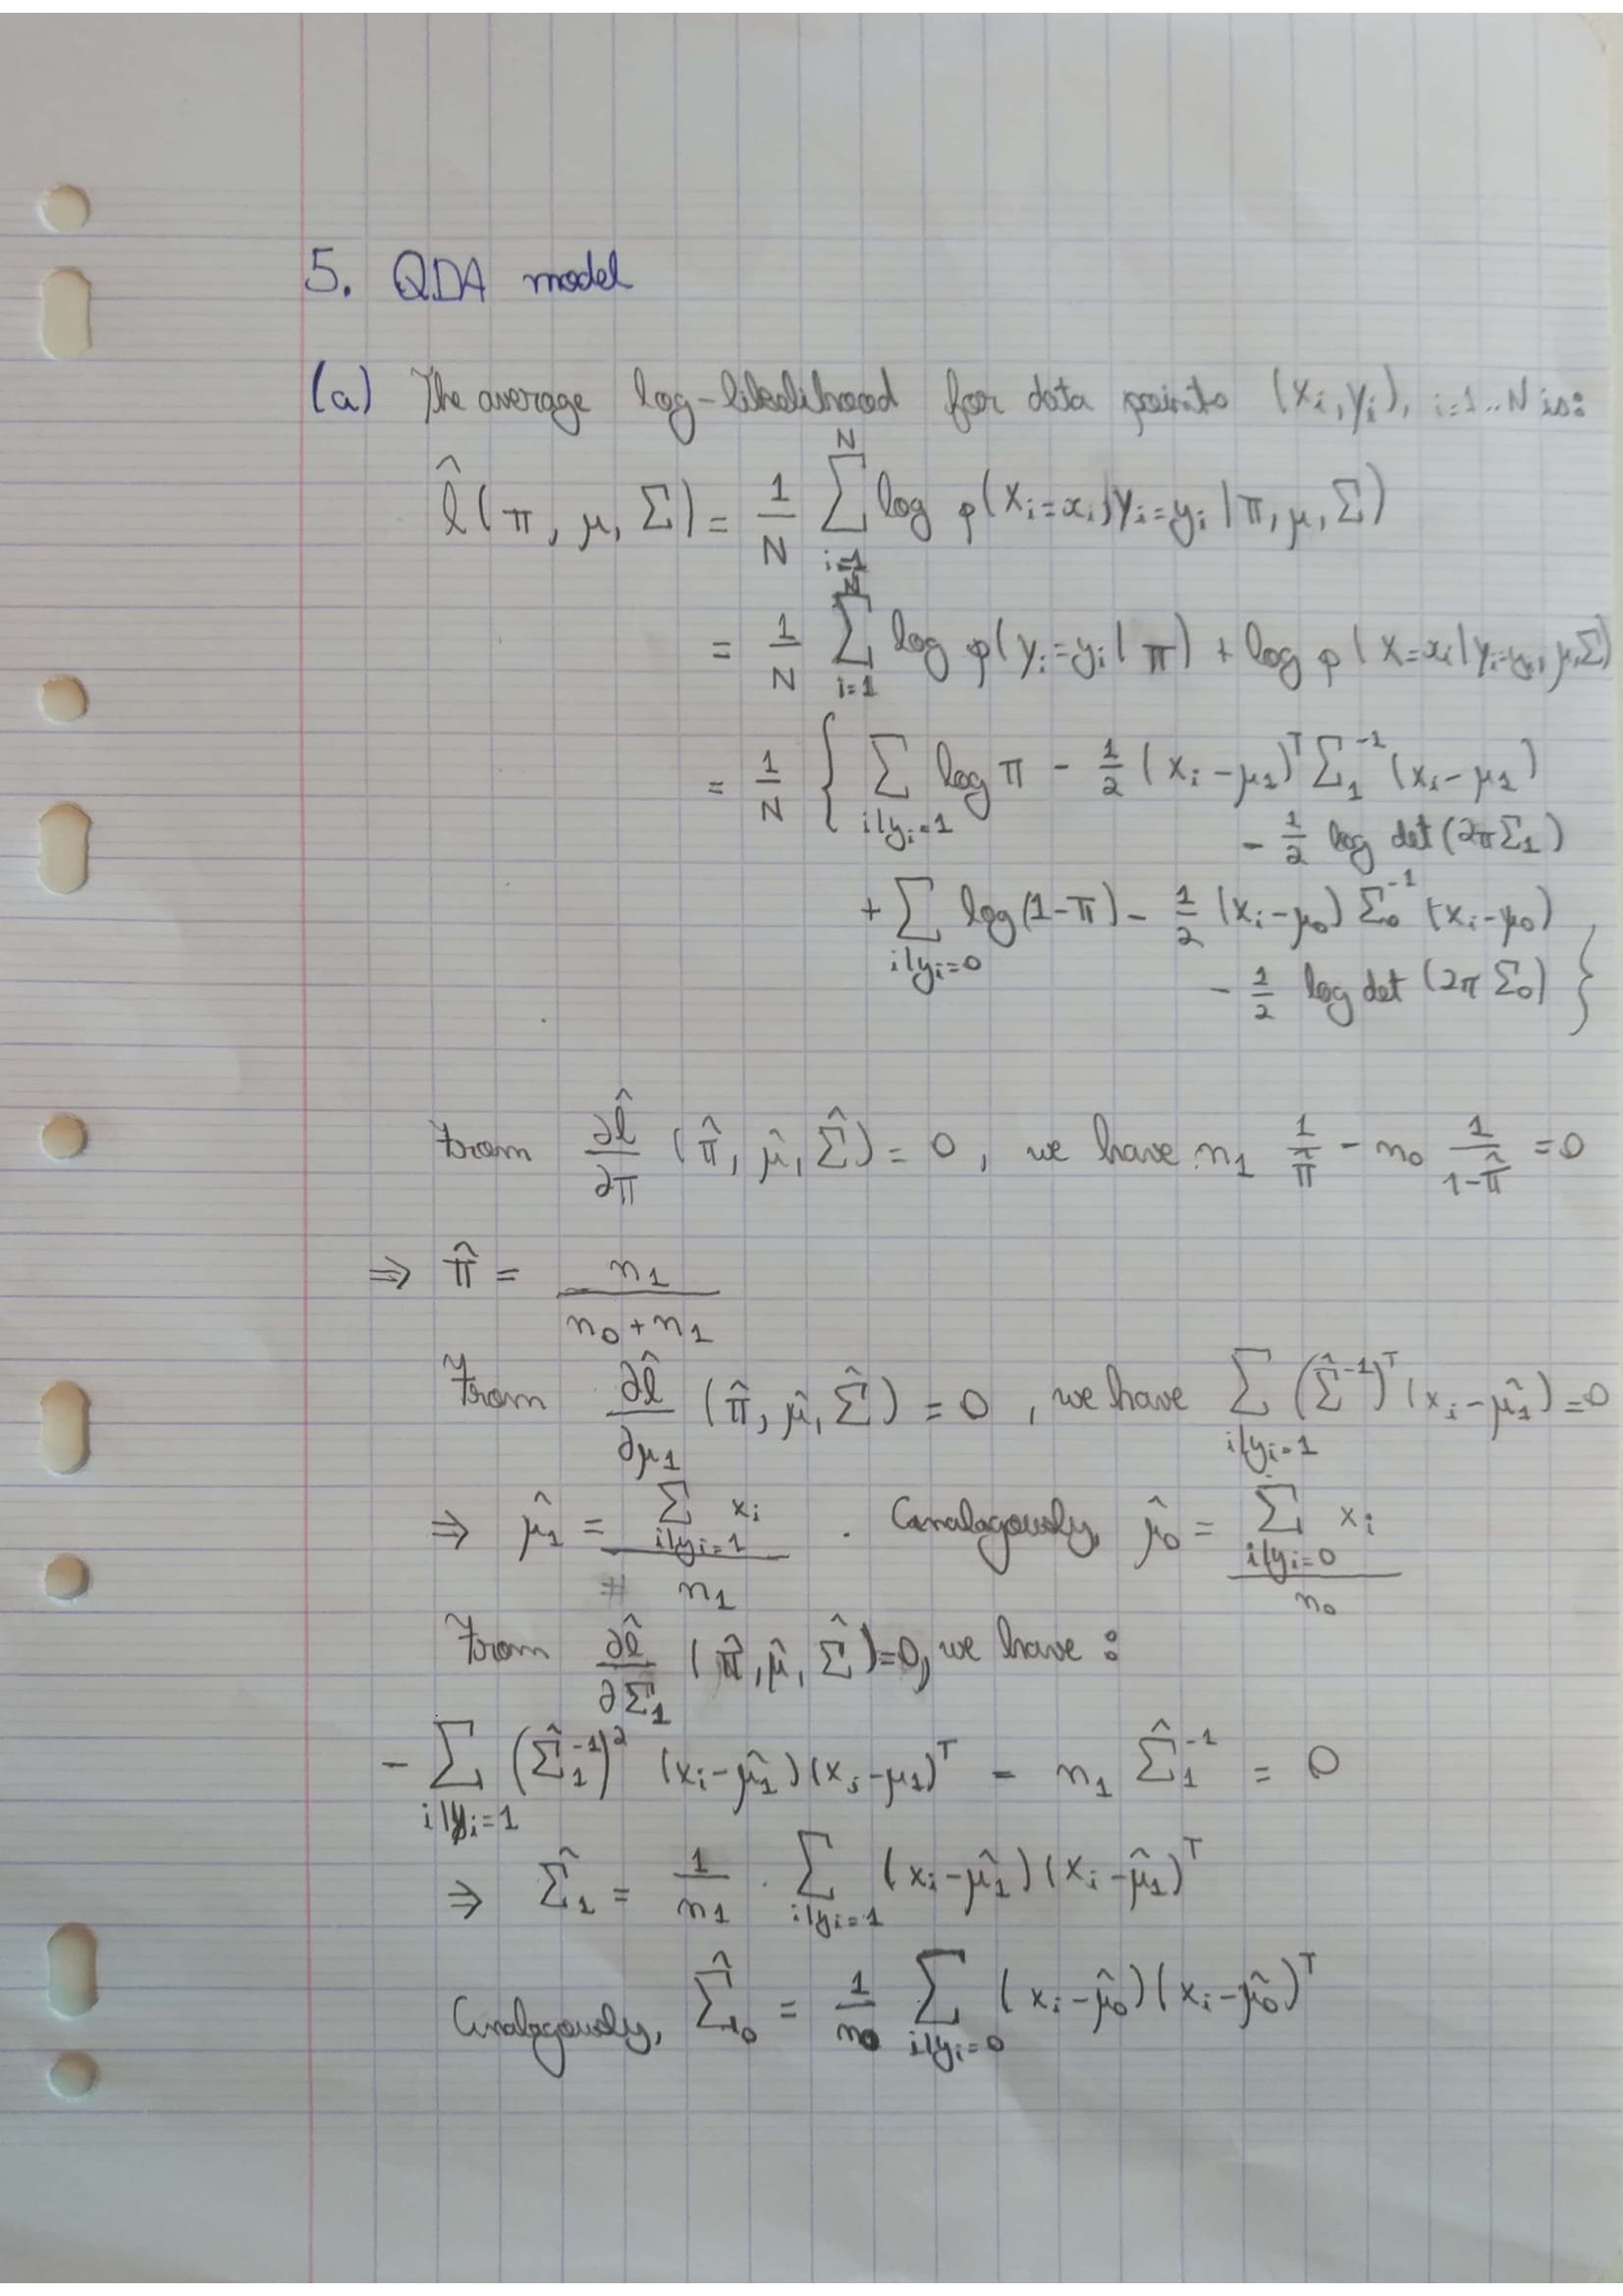 5. QDA model
(a) The average log-likelihood for data points (x_i, y_i), i=1..N is:
l̂(π, μ, Σ) = 1/N Σ_{i=1}^{N} log p(X_i=x_i, Y_i=y_i | π, μ, Σ)
= 1/N Σ_{i=1}^{N} log p(Y_i=y_i | π) + log p(X=x_i | Y_i=y_i, μ, Σ)
= 1/N { Σ_{i|y_i=1} log π - 1/2 (x_i - μ_1)^T Σ_1^{-1} (x_i - μ_1)
- 1/2 log det (2π Σ_1)
+ Σ_{i|y_i=0} log(1-π) - 1/2 (x_i - μ_0) Σ_0^{-1} (x_i - μ_0)
- 1/2 log det (2π Σ_0) }
From ∂l̂/∂π (π̂, μ̂, Σ̂) = 0, we have n_1 1/π̂ - n_0 1/(1-π̂) = 0
⇒ π̂ = n_1/(n_0 + n_1)
From ∂l̂/∂μ_1 (π̂, μ̂, Σ̂) = 0, we have Σ_{i|y_i=1} (Σ̂^{-1})^T (x_i - μ̂_1) = 0
⇒ μ̂_1 = Σ_{i|y_i=1} x_i / n_1 . Analagously, μ̂_0 = Σ_{i|y_i=0} x_i / n_0
From ∂l̂/∂Σ_1 (π̂, μ̂, Σ̂) = 0, we have :
- Σ_{i|y_i=1} (Σ̂_1^{-1})^2 (x_i - μ̂_1)(x_i - μ_1)^T - n_1 Σ̂_1^{-1} = 0
⇒ Σ̂_1 = 1/n_1 . Σ_{i|y_i=1} (x_i - μ̂_1)(x_i - μ̂_1)^T
Analagously, Σ̂_0 = 1/n_0 Σ_{i|y_i=0} (x_i - μ̂_0)(x_i - μ̂_0)^T